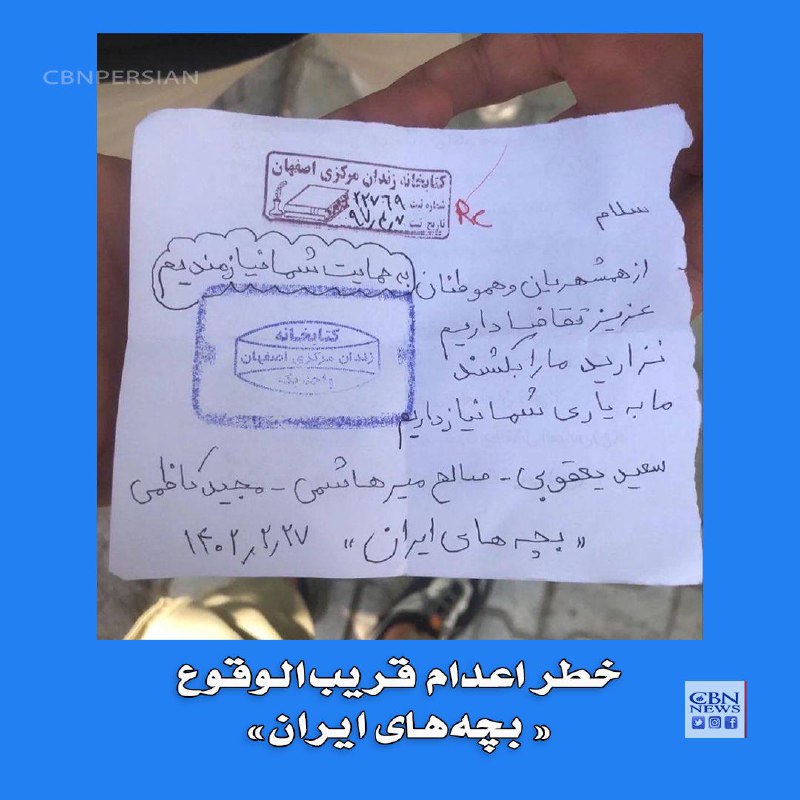 CBNPERSIAN
کتابخانه زندان مرکزی اصفهان
شماره ثبت ۲۲۷۶۹
تاریخ ثبت ۹۷٫۴٫۷
Rc
سلام
از همشهریان و هموطنان
به حمایت شما نیازمندیم
عزیز تقاضا داریم
نزارید ما را بکشند
ما به یاری شما نیاز داریم
کتابخانه
زندان مرکزی اصفهان
واحد یک
سعید یعقوبی - صالح میرهاشمی - مجید کاظمی
« بچه های ایران » ۱۴۰۲٫۲٫۲۷
خطر اعدام قریب‌الوقوع
« بچه‌های ایران»
CBN
NEWS